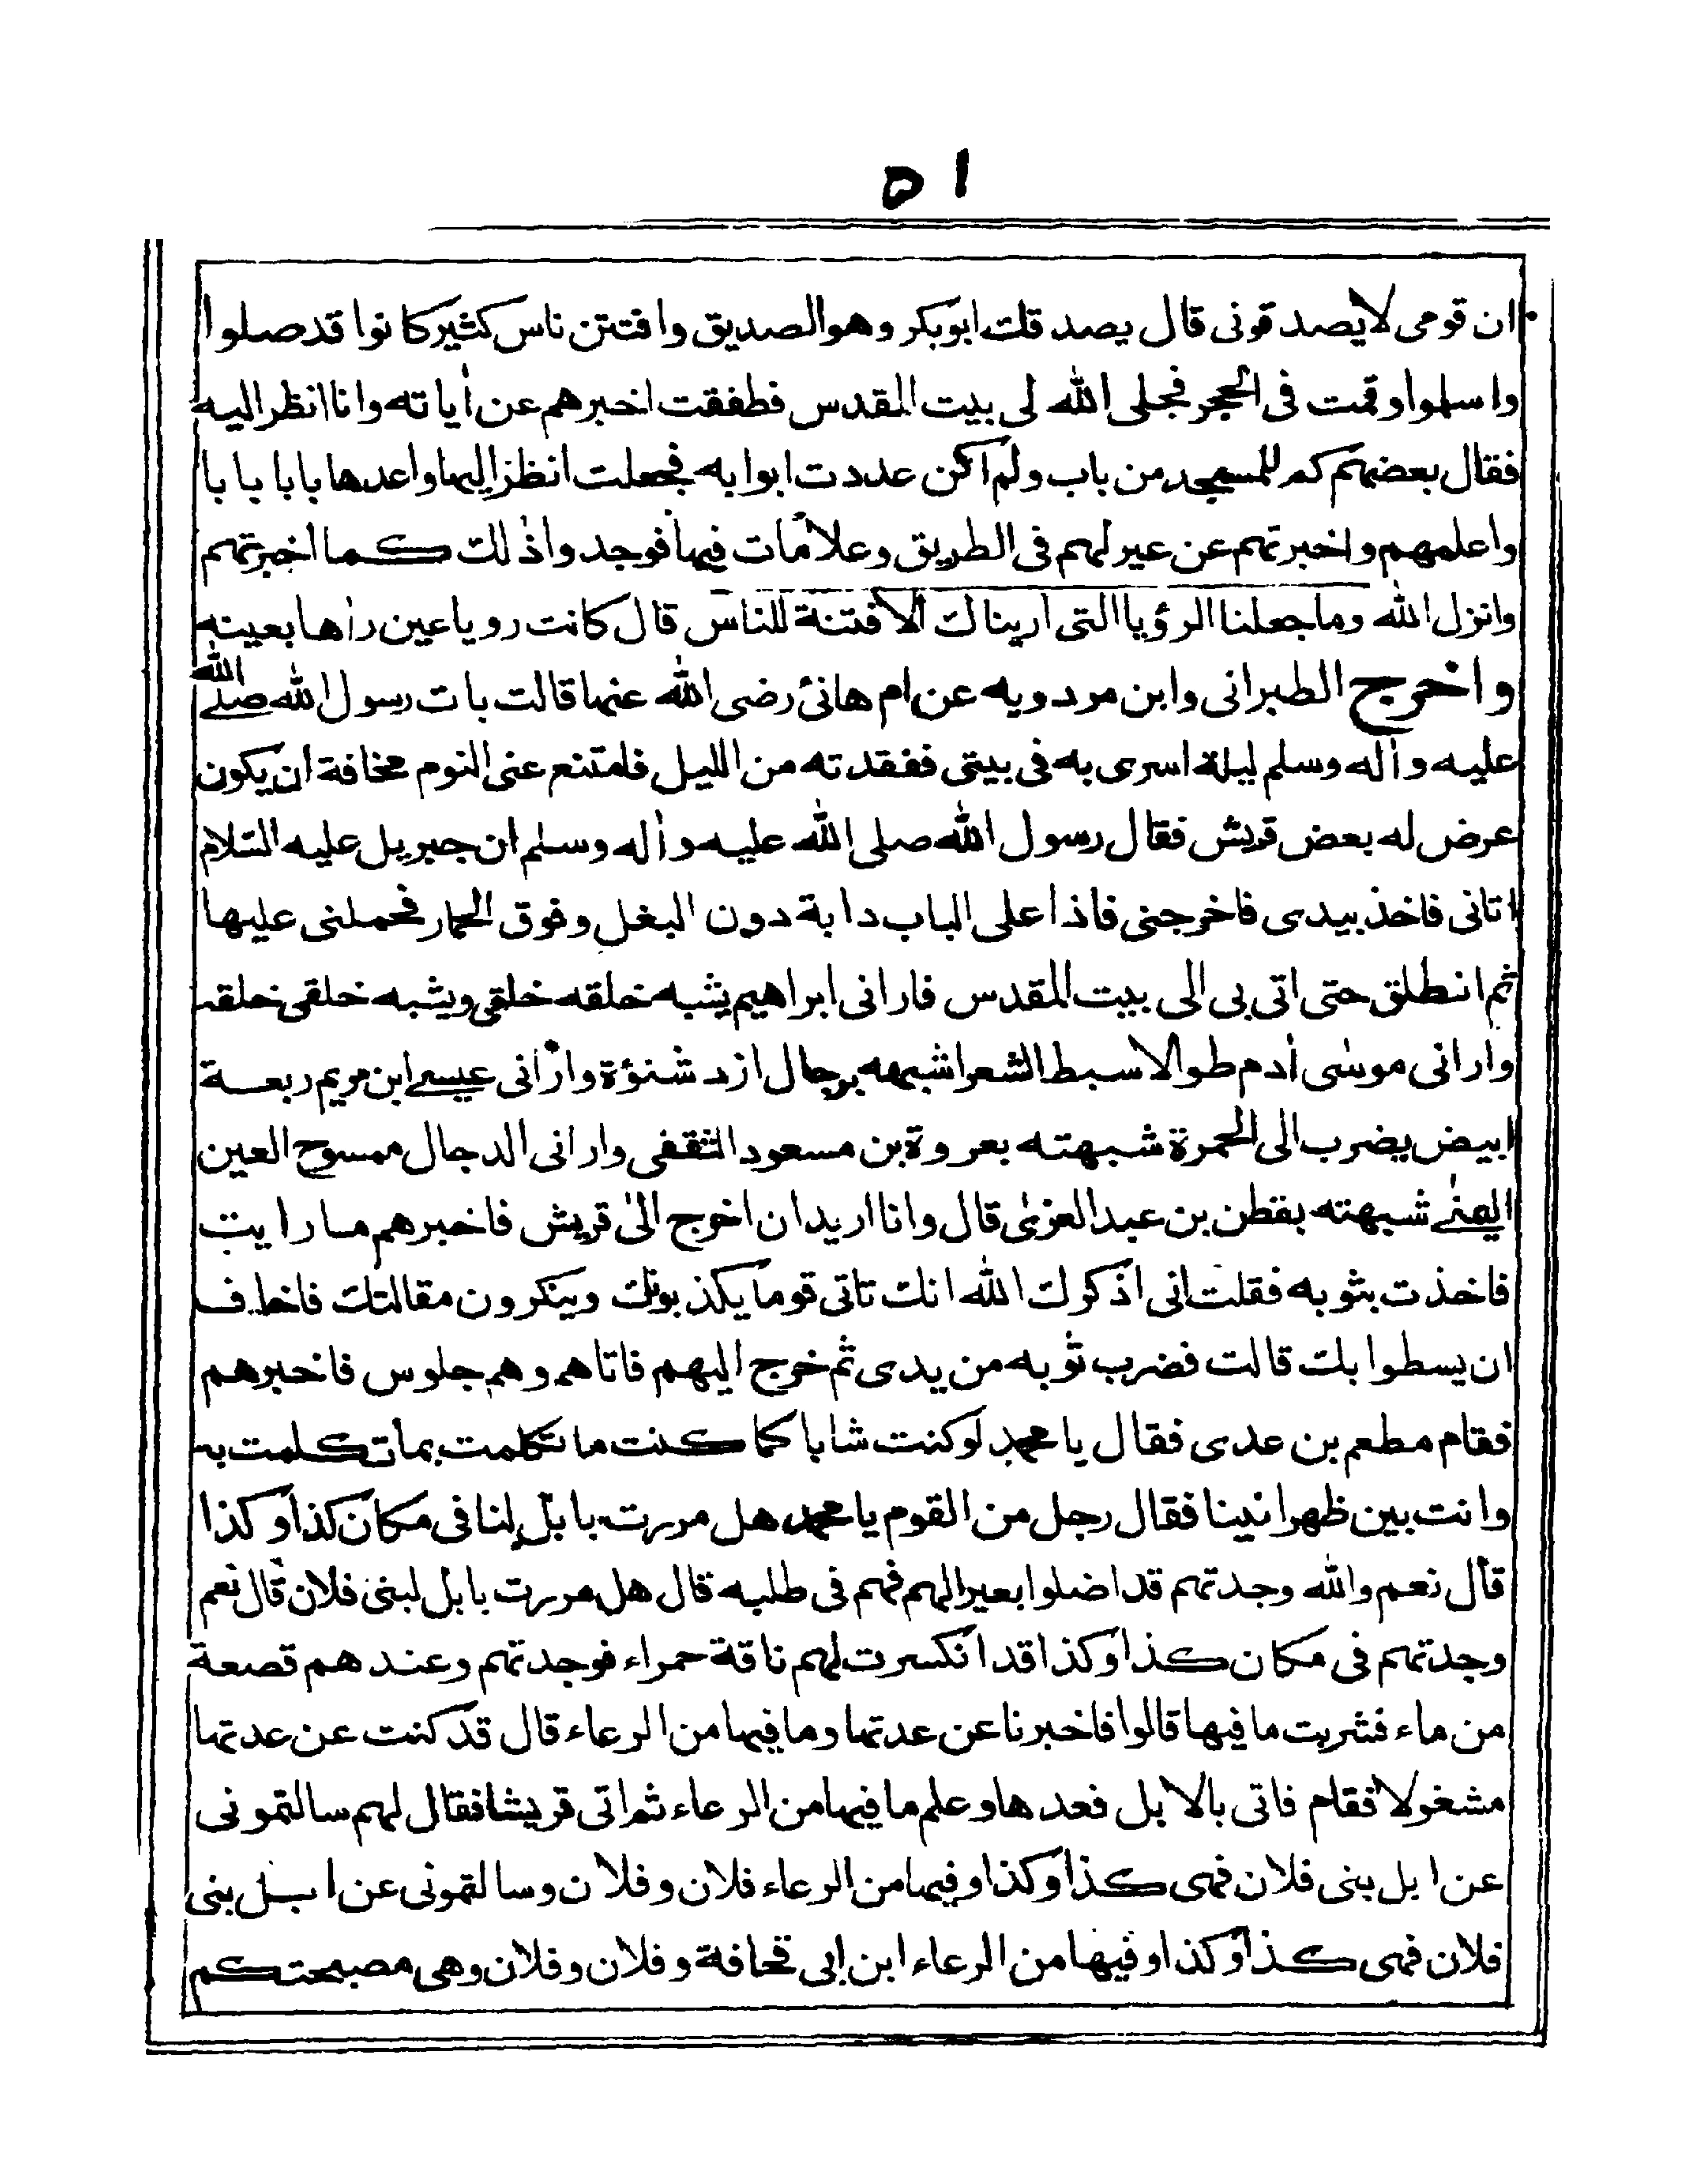 ٥١
ان قومى لايصدقونى قال يصدقك ابوبكر وهو الصديق وافتتن ناس كثير كانوا قد صلوا
واسلموا وقمت فى الحجر فجلى الله لى بيت المقدس فطفقت اخبرهم عن أياته وانا انظر اليه
فقال بعضهم كم للمسجد من باب ولم اكن عددت ابوابه فجعلت انظر اليها واعدها بابا بابا
واعلمهم واخبرتهم عن عير لهم فى الطريق وعلامات فيها فوجدوا ذلك كما اخبرتهم
وانزل الله وما جعلنا الرؤيا التى اريناك الا فتنة للناس قال كانت رويا عين راها بعينه
واخرج الطبرانى وابن مردويه عن ام هانئ رضى الله عنها قالت بات رسول الله صلے الله
عليه وأله وسلم ليلة اسرى به فى بيتى ففقدته من الليل فامتنع عنى النوم مخافة ان يكون
عرض له بعض قريش فقال رسول الله صلى الله عليه وأله وسلم ان جبريل عليه السلام
اتانى فاخذ بيدى فاخرجنى فاذا على الباب دابة دون البغل وفوق الحمار فحملنى عليها
ثم انطلق حتى اتى بى الى بيت المقدس فارانى ابراهيم يشبه خلقه خلقى ويشبه خلقى خلقه
وارانى موسٰى أدم طوالا سبط الشعر اشبهه برجال ازد شنؤة وارانى عيسے ابن مريم ربعة
ابيض يضرب الى الحمرة شبهته بعروة بن مسعود الثقفى وارانى الدجال ممسوح العين
اليمنٰے شبهته بقطن بن عبد العزىٰ قال وانا اريد ان اخرج الىٰ قريش فاخبرهم ما رايت
فاخذت بثوبه فقلت انى اذكرك الله انك تاتى قوما يكذبونك وينكرون مقالتك فاخاف
ان يسطوا بك قالت فضرب ثوبه من يدى ثم خرج اليهم فاتاهم وهم جلوس فاخبرهم
فقام مطعم بن عدى فقال يا محمد لو كنت شابا كما كنت ما تكلمت بما تكلمت به
وانت بين ظهرانينا فقال رجل من القوم يا محمد هل مررت بابل لنا فى مكان كذا وكذا
قال نعم والله وجدتهم قد اضلوا بعيرا لهم فهم فى طلبه قال هل مررت بابل لبنى فلان قال نعم
وجدتهم فى مكان كذا وكذا قد انكسرت لهم ناقة حمراء فوجدتهم وعندهم قصعة
من ماء فشربت ما فيها قالوا فاخبرنا عن عدتها وما فيها من الرعاء قال قد كنت عن عدتها
مشغولا فقام فاتى بالابل فعدها وعلم ما فيها من الرعاء ثم اتى قريشا فقال لهم سالتمونى
عن ابل بنى فلان فهى كذا وكذا وفيها من الرعاء فلان وفلان وسالتمونى عن ابل بنى
فلان فهى كذا وكذا وفيها من الرعاء ابن ابى قحافة وفلان وفلان وهى مصبحتكم